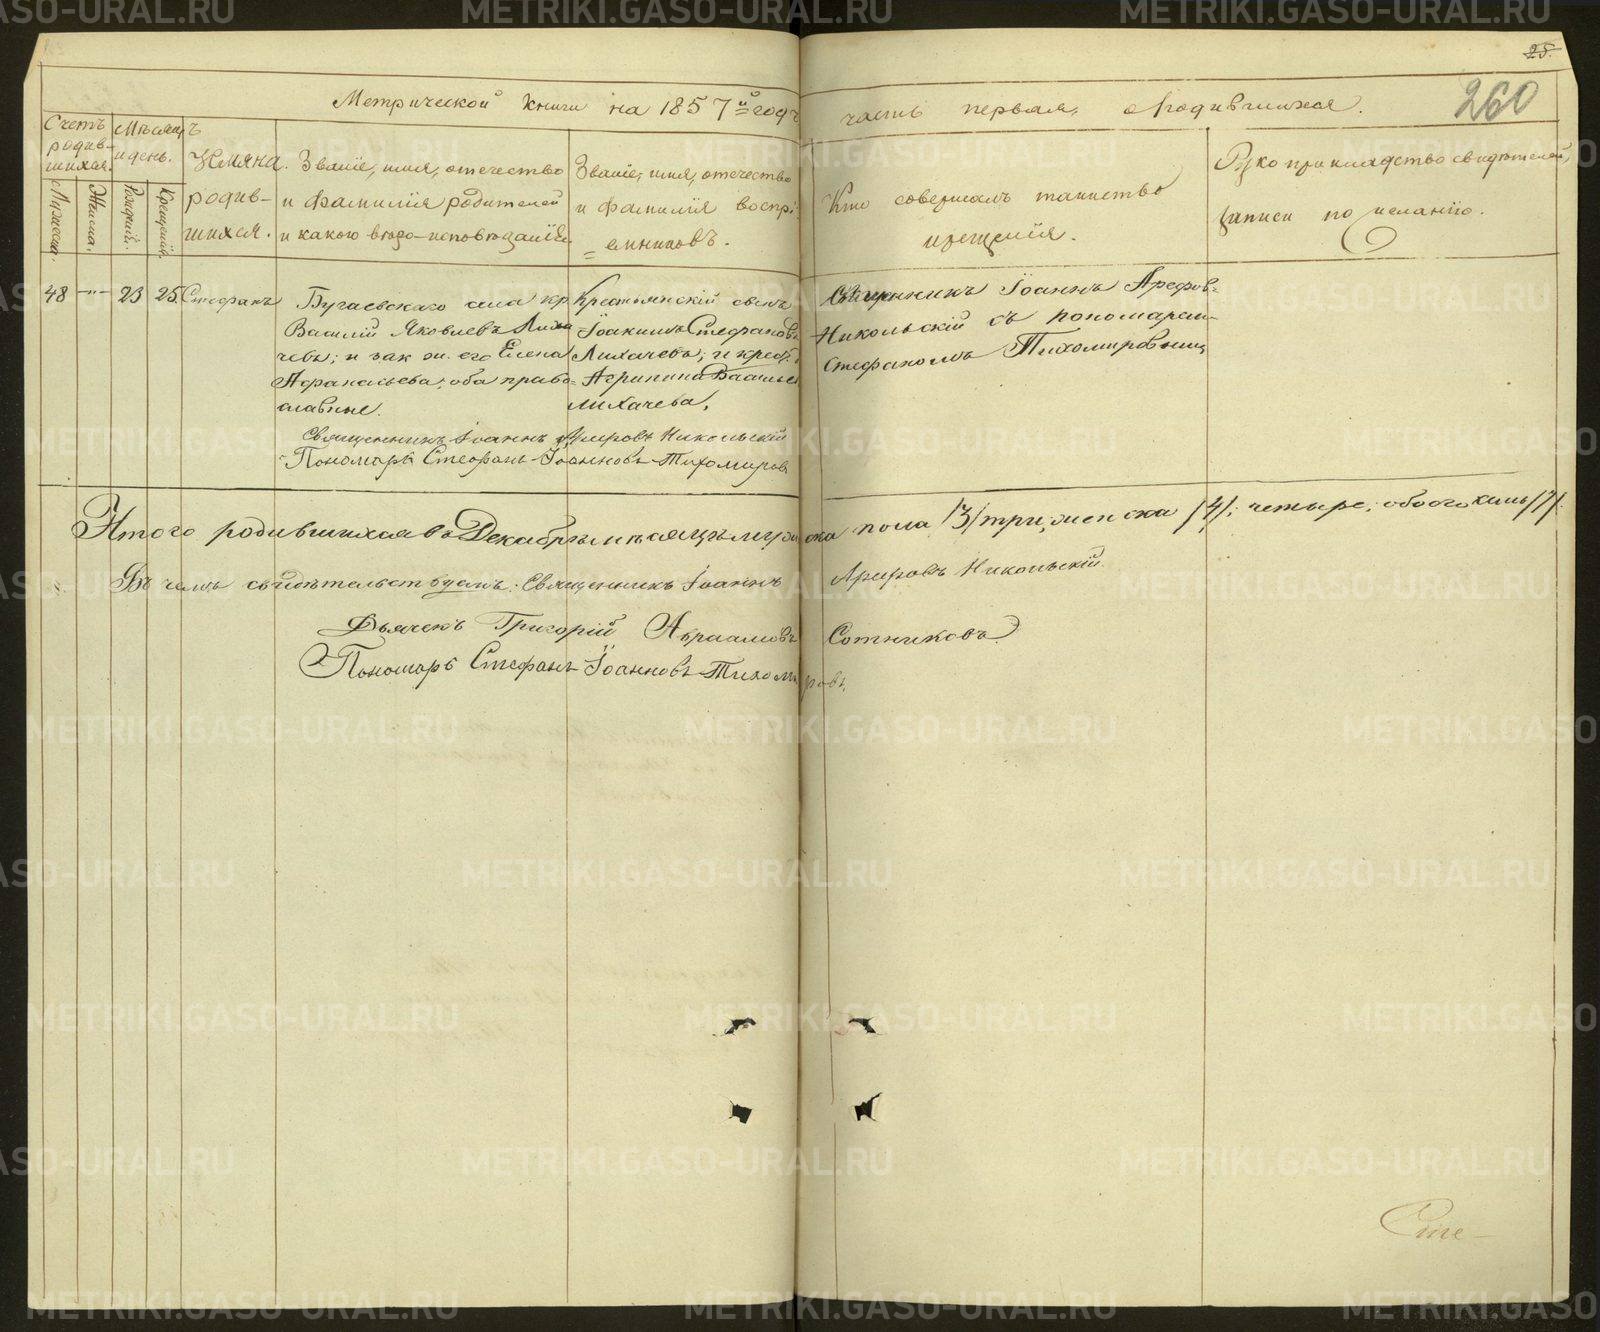 25.
260
Метрической книги на 1857й годъ часть первая, о родившихся.
Счетъ родив-шихся.
Мѣсяцъ и день.
Мужеска.
Женска.
Рожденій.
Крещенія.
Имяна родив-шихся.
Званіе, имя, отечество
и фамилія родителей
и какого вѣро-исповѣданія.
Званіе, имя, отечество
и фамилія воспрі-
емниковъ.
Кто совершалъ таинство
крещенія.
Рукоприкладство свидѣтелей,
записи по желанію.
48 -"- 23 25 Стефанъ
Бугаевскаго села кр.
Василій Яковлевъ Лиха
чевъ; и зак. ж. его Елена
Афанасьева; оба право-
славные.
Крестьянскій сынъ
Іоакимъ Стефановъ
Лихачевъ; и крест. д.
Агрипина Василье
Лихачева.
Священникъ Іоаннъ Арефов-
Никольскій съ пономаремъ
Стефаномъ Тихомировымъ
Священникъ Іоаннъ Никольскій
Пономарь Стефанъ Іоанновъ Тихомировъ
Итого родившихся въ Декабрѣ мѣсяцѣ мужеска пола /3/ три, женска /4/; четыре; обоего /7/.
Въ чемъ свидѣтельствуемъ: Священникъ Іоаннъ Арефовъ Никольскій.
Дьячекъ Григорій Авраамовъ Сотниковъ
Пономарь Стефанъ Іоанновъ Тихомировъ
METRIKI.GASO-URAL.RU